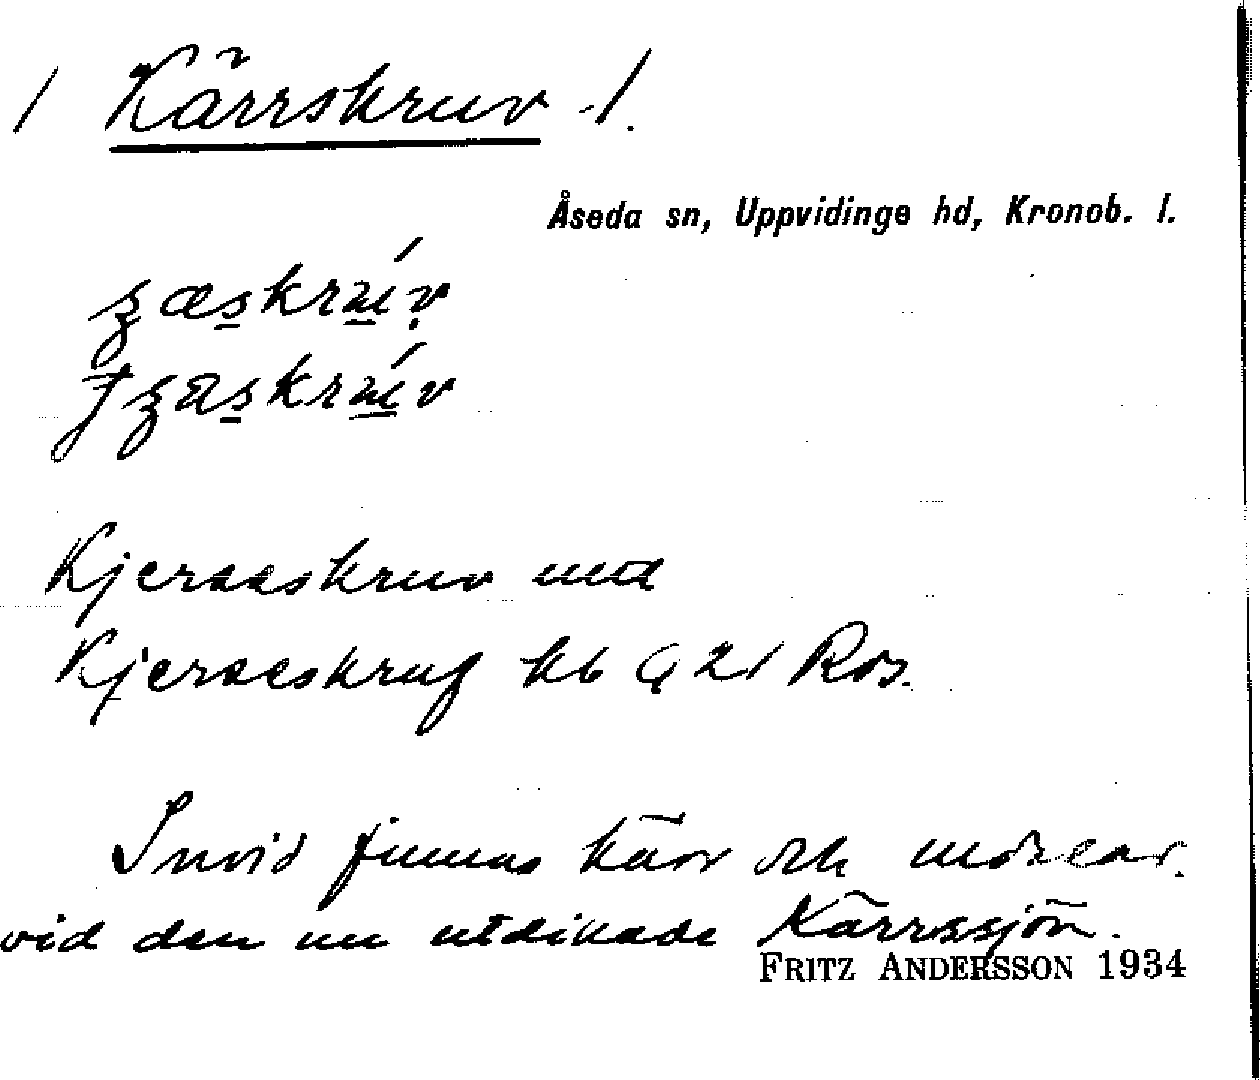 1 Kärrskruv -1.
Åseda sn, Uppvidinge hd, Kronob. l.
Kjerreskruv
Kjerreskruf hb Q 21 Ros.
Invid finnas kärr och mossar.
vid den nu utdikade Kärrssjön.
FRITZ ANDERSSON 1934